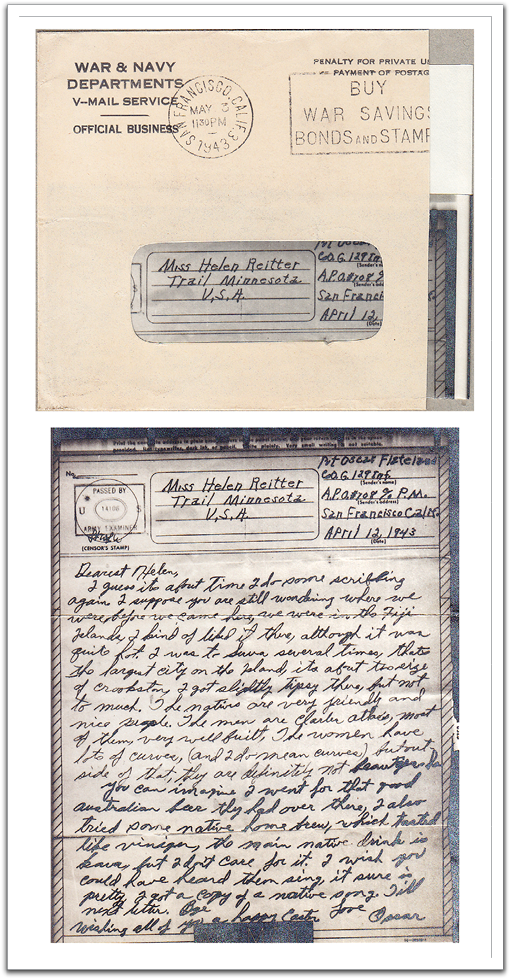 WAR & NAVY
DEPARTMENTS
V-MAIL SERVICE
OFFICIAL BUSINESS
SAN FRANCISCO, CALIF. 3
MAY 3
11 30 PM
1943
PENALTY FOR PRIVATE US
PAYMENT OF POSTAG
BUY
WAR SAVINGS
BONDS AND STAMP
Miss Helen Reitter
Trail Minnesota
U.S.A.
Co. G. 129 Inf
(Sender's na
A.P.O. 8708 %
(Sender's addr
San Franci
April 12,
(Date)
No.
PASSED BY
U S
ARMY EXAMINER
(CENSOR'S STAMP)
Miss Helen Reitter
Trail Minnesota
U.S.A.
Pvt Oscar
Co. G. 129 Inf
(Sender's name)
A.P.O. 8708 % P.M.
(Sender's address)
San Francisco Calif.
April 12, 1943
(Date)
Dearest Helen,
I guess its about time I do some scribling
again. I suppose you are still wondering where we
were before we came here, we were in the Fiji
Islands, I kind of liked it there, although it was
quite hot. I was to Suva several times, thats
the largest city on the Island, its about the size
of crookston, I got slightly tipsy there, but not
to much. The natives are very friendly and
nice people. The men are most
of them, very well built. The women have
lots of curves, (and I do mean curves) but out
side of that, they are definitly not
you can imagine I went for that good
australian beer they had over there, I also
tried some native home brew, which tasted
like vinager, the main native drink is
kava, but I don't care for it. I wish you
could have heard them sing it sure is
pretty, I got a copy of a native song. Till
next letter, Bye
wishing all of you a happy Easter Love Oscar